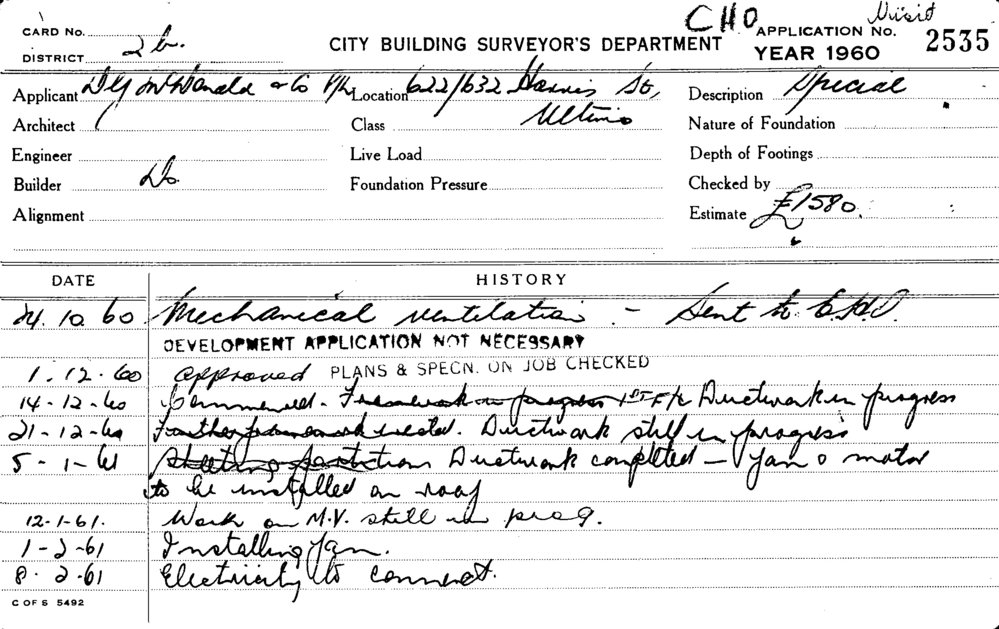 CHO Visit
CARD No.
DISTRICT 2b.
CITY BUILDING SURVEYOR'S DEPARTMENT
APPLICATION No. 2535
YEAR 1960
Applicant McDonald & Co P/L Location 622/632 Harris St, Description Special
Architect Class Ultimo Nature of Foundation
Engineer Live Load Depth of Footings
Builder Do. Foundation Pressure Checked by
Alignment Estimate £1580.
DATE HISTORY
24.10.60 Mechanical ventilation - Sent to C.H.O.
DEVELOPMENT APPLICATION NOT NECESSARY
1.12.60 approved PLANS & SPECN. ON JOB CHECKED
14-12-60 Commenced. Framework in progress 1ST F/L Ductwork in progress
21-12-60 Further framework erected. Ductwork still in progress
5-1-61 Sheeting partitions Ductwork completed - fan & motor
to be installed on roof
12-1-61. Work on M.V. still in prog.
1-2-61 Installing fan.
8.2.61 Electricity to connect.
C OF S 5492